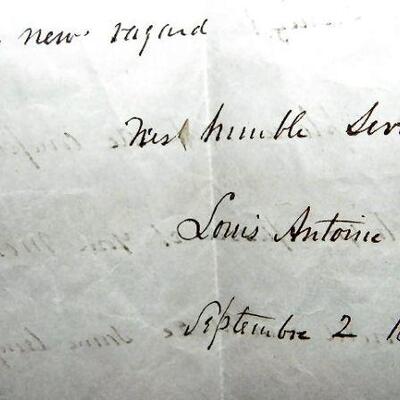 new ragard
Most humble Ser
Louis Antoine
Septembre 2 18